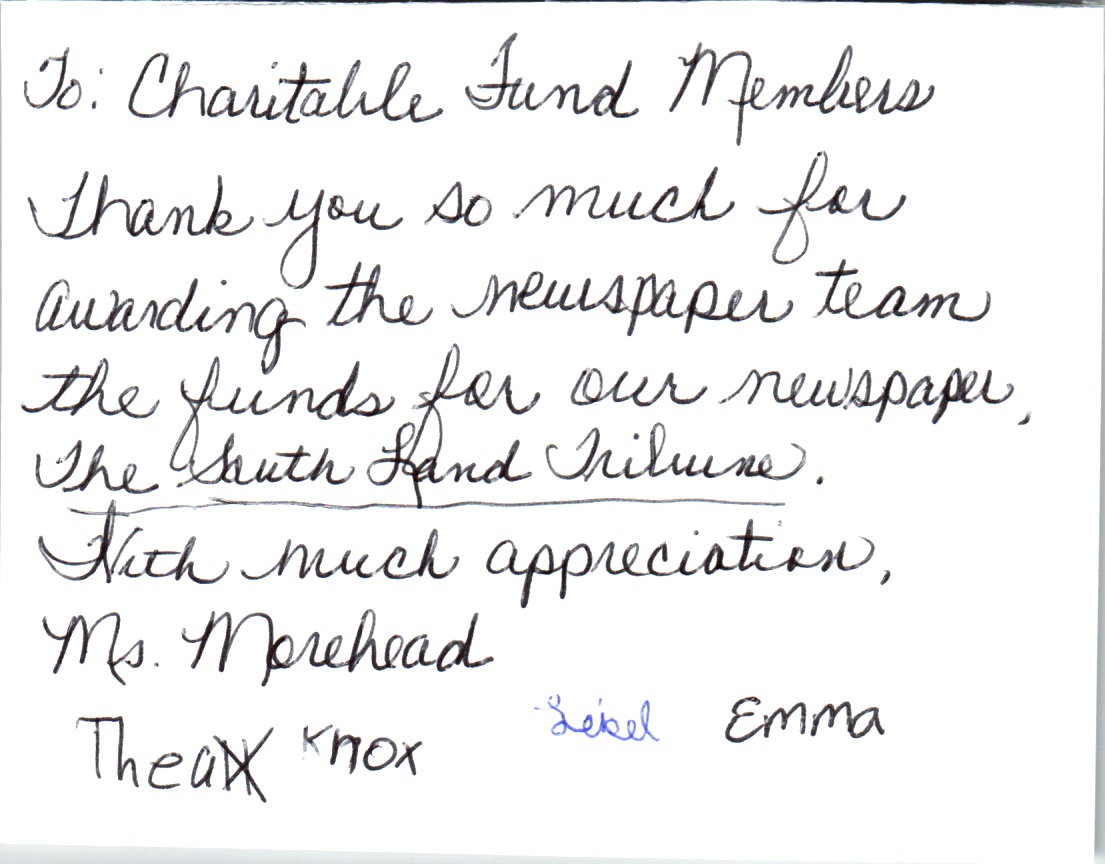 To: Charitable Fund Members
Thank you so much for
awarding the newspaper team
the funds for our newspaper,
The South Land Tribune.
With much appreciation,
Ms. Morehead
Thea Knox Emma